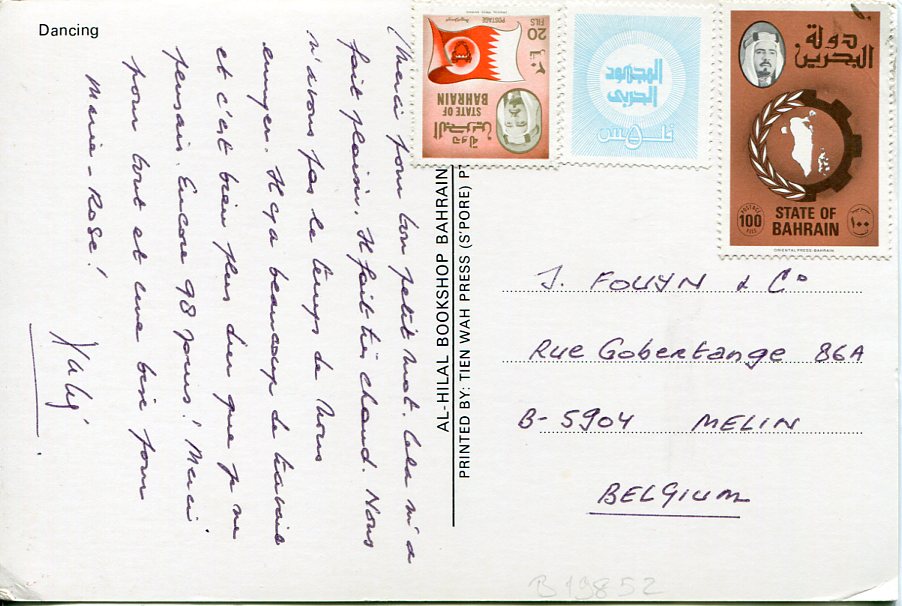 Dancing
Merci pour ton petit mot. Cela m'a
fait plaisir. Il fait très chaud. Nous
n'avons pas le temps de nous
ennuyer. Il y a beaucoup de travail
et c'est bien plus dur que je ne
pensais. Encore 98 jours! Merci
pour tout et une bise pour
Marie-Rose!
AL-HILAL BOOKSHOP BAHRAIN
PRINTED BY: TIEN WAH PRESS (S'PORE) PT
POSTAGE
20
FILS
٢٠
STATE OF
BAHRAIN
دولة
البحرين
المجهود
الحربي
٥ فلوس
دولة
البحرين
POSTAGE
100
FILS
STATE OF
BAHRAIN
١٠٠
ORIENTAL PRESS-BAHRAIN
J. FOUYN & Co
Rue Gobertange 86A
B-5904 MELIN
BELGIUM
B19852